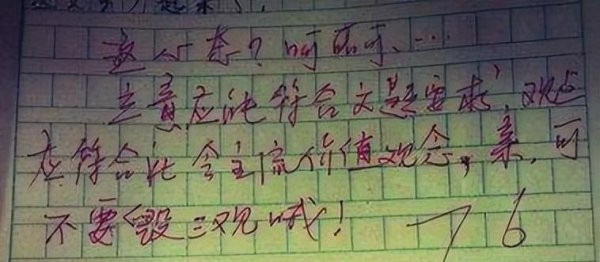 这心态？呵呵呵、…
立意应能符合文题要求，观点
应符合社会主流价值观念，亲，可
不要毁三观哦！ 76